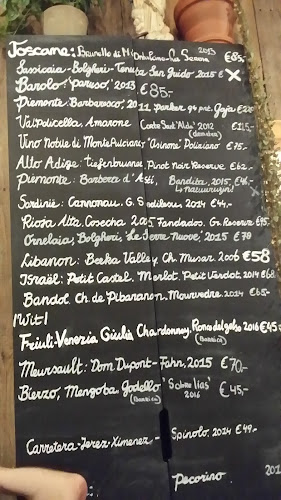 Toscane: Brunello di Montalcino - Le Serena 2013 €85,-
Sassicaia - Bolgheri - Tenuta San Guido, 2015 € X
Barolo 'Parusso', 2013 €85.-
Piemonte Barbaresco, 2011 parker 94 pnt. Gaja €22
Valpolicella Amarone Corte Sant' Alda' 2012 €115,-
Vino Nobile di Montepulciano, 'Poliziano, 2015 €76.-
Alto Adige: Tiefenbrunner Pinot Noir Reserve €62.-
Piemonte: Barbera d'Asti, Bandita, 2015, €46,-
Sardinië: Cannonau, G. Sedilesu, 2014 €44,-
Rioja Alta, Cosecha 2015 Fandados. Gr. Reserve €95,-
Ornelaia, Bolgheri, 'Le Serre Nuove', 2015 € 79
Libanon: Beeka Valley, Ch. Musar. 2006 €58
Israël: Petit Castel. Merlot. Petit Verdot, 2014 €68
Bandol Ch. de Pibaranon. Mourvedre. 2014 €65.-
/Wit/
Friuli-Venezia Giulia, Chardonnay, Ronco del gelso 2016 €45
(Barrica)
Meursault: Dom Dupont-Fahn, 2015 €70,-
Bierzo, Mengoba, Godello 'Sobre lías' €45,-
(Barrica) 2016
Carretera-Jerez-Ximenez,- Spinola, 2014 €49.-
Pecorino 201